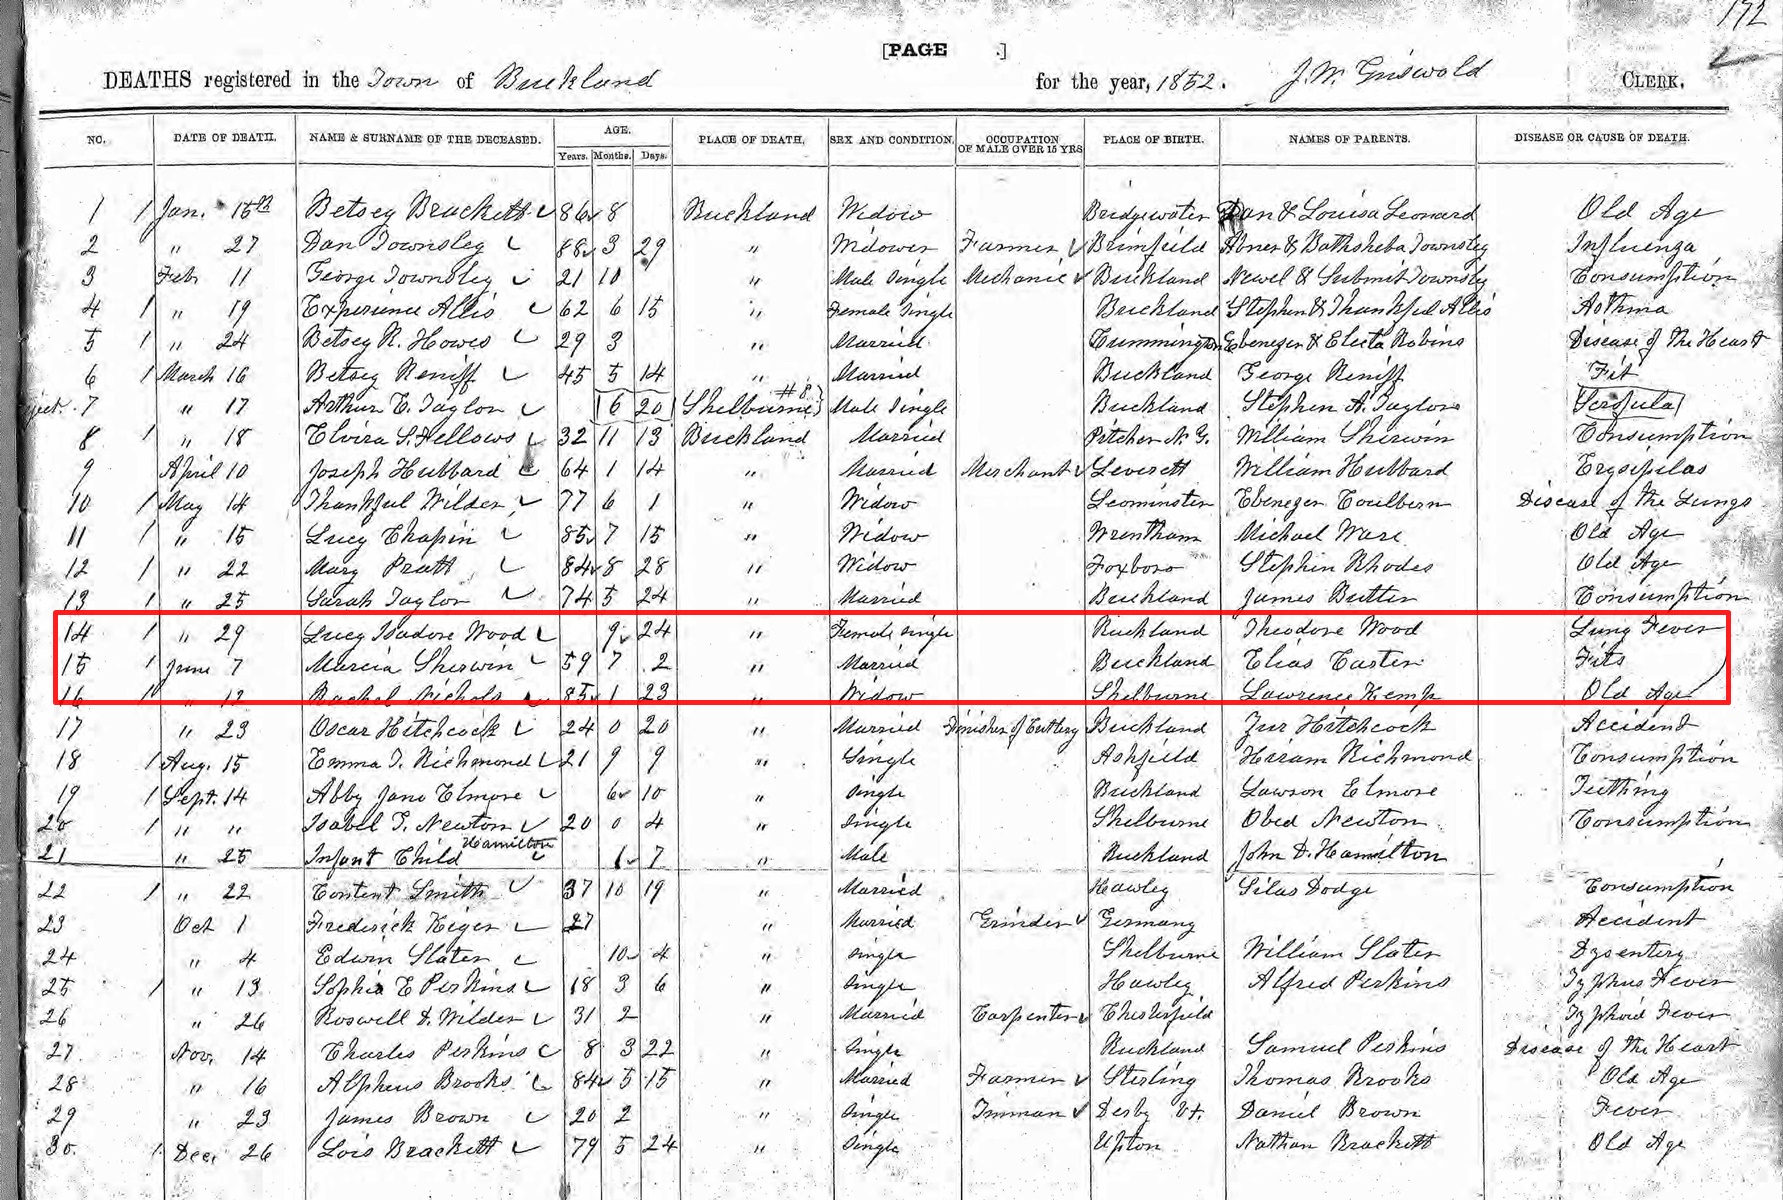 172
[PAGE .]
DEATHS registered in the Town of Buckland for the year, 1852. J. W. Griswold CLERK.
NO. DATE OF DEATH. NAME & SURNAME OF THE DECEASED. AGE. PLACE OF DEATH. SEX AND CONDITION. OCCUPATION OF MALE OVER 15 YRS PLACE OF BIRTH. NAMES OF PARENTS. DISEASE OR CAUSE OF DEATH.
Years. Months. Days.
1 1 Jan. 15th Betsey Brackett 86 8 Buckland Widow Bridgewater Dan & Louisa Leonard Old Age
2 " 27 Dan Townsley 88 3 29 " Widower Farmer Brimfield Abner & Bathsheba Townsley Influenza
3 Feb 11 George Townsley 21 10 " Male Single Mechanic Buckland Newel & Submit Townsley Consumption
4 1 " 19 Experience Allis 62 6 15 " Female Single Buckland Stephen & Thankful Allis Asthma
5 1 " 24 Betsey R. Howes 29 3 " Married Cummington Ebenezer & Electa Robins Disease of the Heart
6 1 March 16 Betsey Reniff 45 5 14 " Married Buckland George Reniff Fit
7 " 17 Arthur E. Taylor 16 20 Shelburne #8 Male Single Buckland Stephen A. Taylor Scrofula
8 1 " 18 Elvira S. Fellows 32 11 13 Buckland Married Pitcher N.Y. William Sherwin Consumption
9 1 April 10 Joseph Hubbard 64 1 14 " Married Merchant Leverett William Hubbard Erysipilas
10 1 May 14 Thankful Wilder 77 6 1 " Widow Leominster Ebenezer Coulbern Disease of the Lungs
11 1 " 15 Lucy Chapin 85 7 15 " Widow Wrentham Michael Ware Old Age
12 1 " 22 Mary Pratt 84 8 28 " Widow Foxboro Stephen Rhodes Old Age
13 1 " 25 Sarah Taylor 74 5 24 " Married Buckland James Butler Consumption
14 1 " 29 Lucy Isadore Wood 9 24 " Female Single Buckland Theodore Wood Lung Fever
15 1 June 7 Marcia Sherwin 59 7 2 " Married Buckland Elias Carter Fits
16 1 " 12 Rachel Nichols 85 1 23 " Widow Shelburne Lawrence Kemp Old Age
17 " 23 Oscar Hitchcock 24 0 20 " Married Finisher of Cutlery Buckland Zur Hitchcock Accident
18 1 Aug. 15 Emma T. Richmond 21 9 9 " Single Ashfield Hiram Richmond Consumption
19 1 Sept. 14 Abby Jane Elmore 6 10 " Single Buckland Lawson Elmore Teething
20 1 " " Isabel T. Newton 20 0 4 " Single Shelburne Obed Newton Consumption
21 " 25 Infant Child Hamilton 1 7 " Male Buckland John D. Hamilton
22 1 " 22 Content Smith 37 10 19 " Married Hawley Silas Dodge Consumption
23 Oct 1 Frederick Kiger 27 " Married Grinder Germany Accident
24 " 4 Edwin Slater 10 4 " Single Shelburne William Slater Dysentery
25 1 " 13 Sophia E Perkins 18 3 6 " Single Hawley Alfred Perkins Typhus Fever
26 " 26 Roswell D. Wilder 31 2 " Married Carpenter Chesterfield Typhoid Fever
27 Nov. 14 Charles Perkins 8 3 22 " Single Buckland Samuel Perkins Disease of the Heart
28 " 16 Alpheus Brooks 84 5 15 " Married Farmer Sterling Thomas Brooks Old Age
29 " 23 James Brown 20 2 " Single Tinman Derby Vt. Daniel Brown Fever
30. 1 Dec. 26 Lois Brackett 79 5 24 " Single Upton Nathan Brackett Old Age